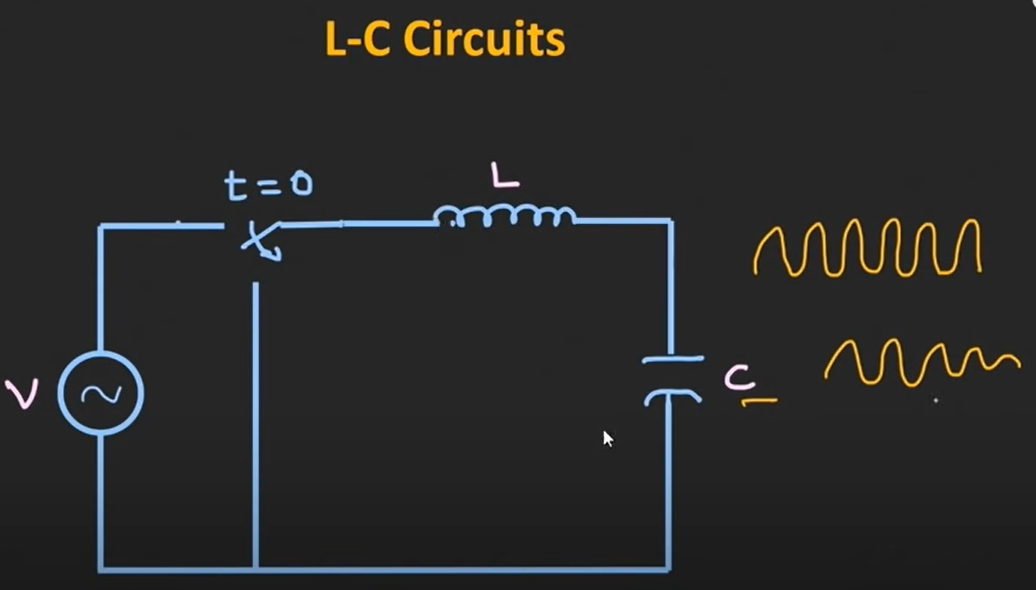 L-C Circuits
t=0
L
V
C